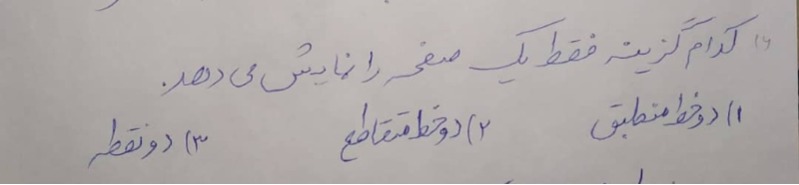 ۱۶) کدام گزینه فقط یک صفحه را نمایش می دهد.
۱) دو خط منطبق ۲) دو خط متقاطع ۳) دو نقطه